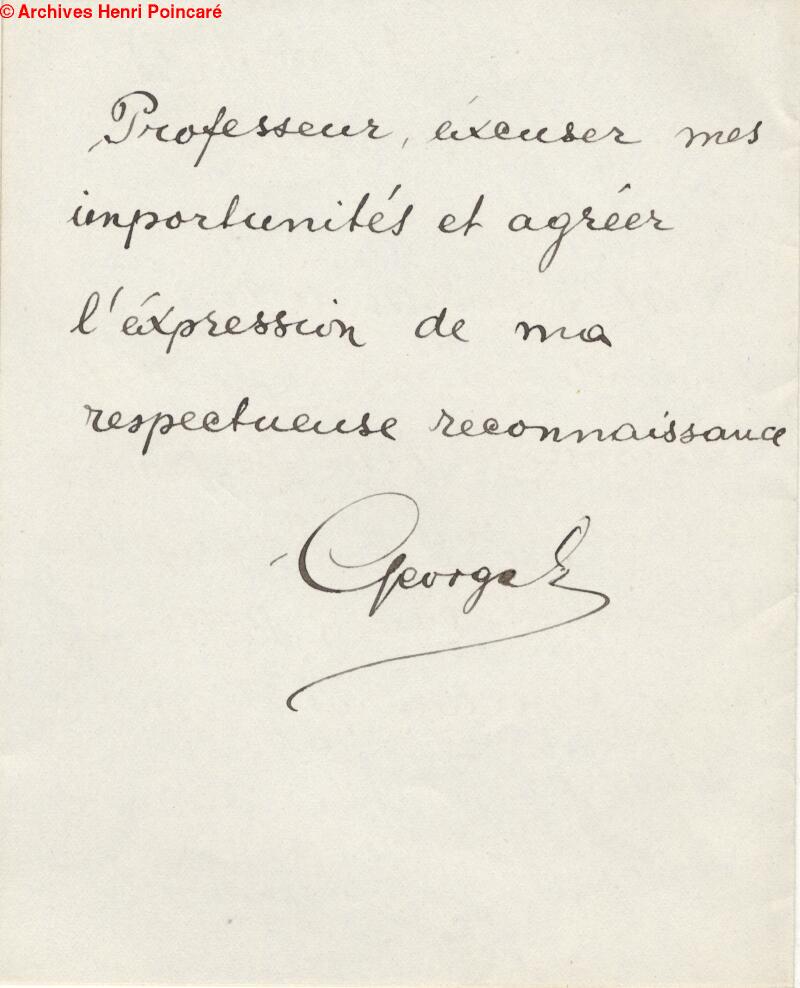 © Archives Henri Poincaré
Professeur, éxcuser mes
importunités et agréer
l'éxpression de ma
respectueuse reconnaissance
Georges